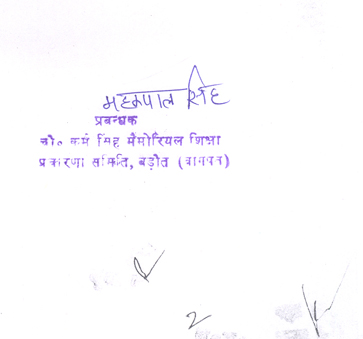 महकपाल सिंह
प्रबन्धक
चौ० कर्म सिंह मैमोरियल शिक्षा
प्रकारणा समिति, बड़ौत (बागपत)
2